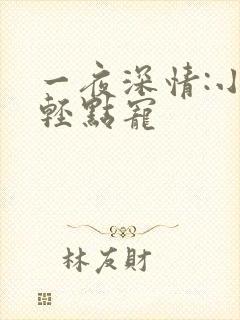 一夜深情:小
輕點寵
林友財